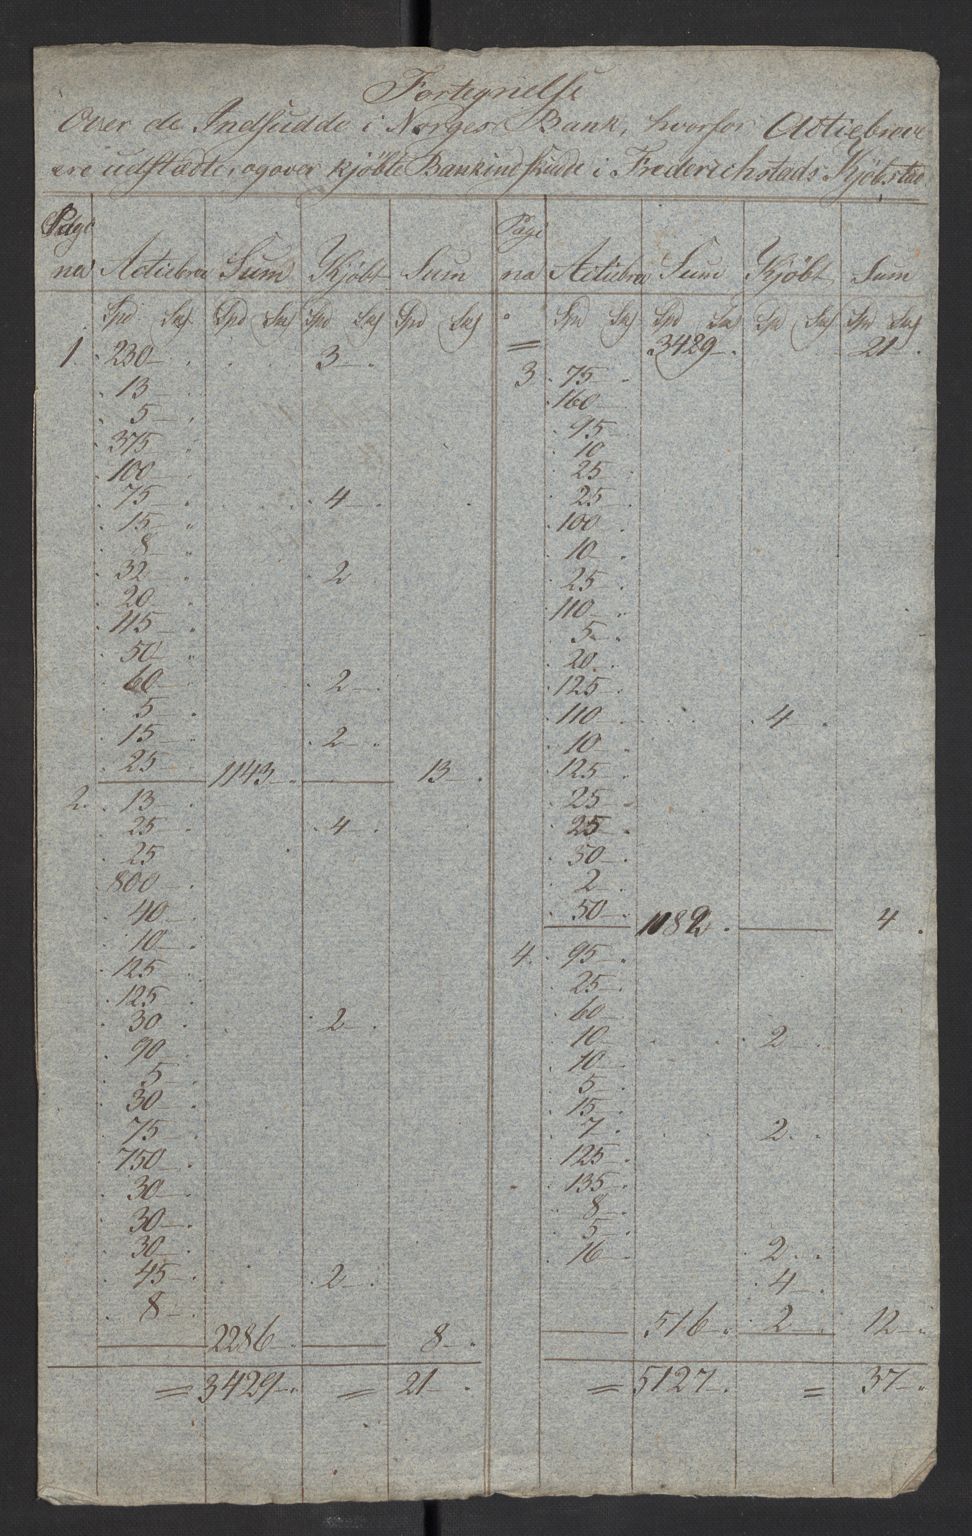 Fortegnelse
Over de Indskudde i Norges Bank, hvorfor Actiebreve
ere udstædte, og over kjøbte Bankindskudde i Frederichstads Kjøbstad
Pagi Pagi
na Actiebrev Sum Kjøbt Sum na Actiebrev Sum Kjøbt Sum
Spd Sk Spd Sk Spd Sk Spd Sk Spd Sk Spd Sk Spd Sk Spd Sk
= 3429 21
1. 230 3
3 75
13
160
5
95
375
10
100
25
75 4
25
15
100
8
10
32 2
25
20
110
115
5
50
20
60 2
125
5
110 4
15 2
10
25 1143 13
125
2. 13
25
25 4
25
25
50
800
2
40
50 1182 4
10
4. 95
125
25
125
60
30 2
10 2
90
10
5
5
30
15
75
7 2
750
125
30
135
30
8
30
5
45 2
16 2
8
4
2286 8
516 2 12
= 3429 = 21 = 5127 = 37